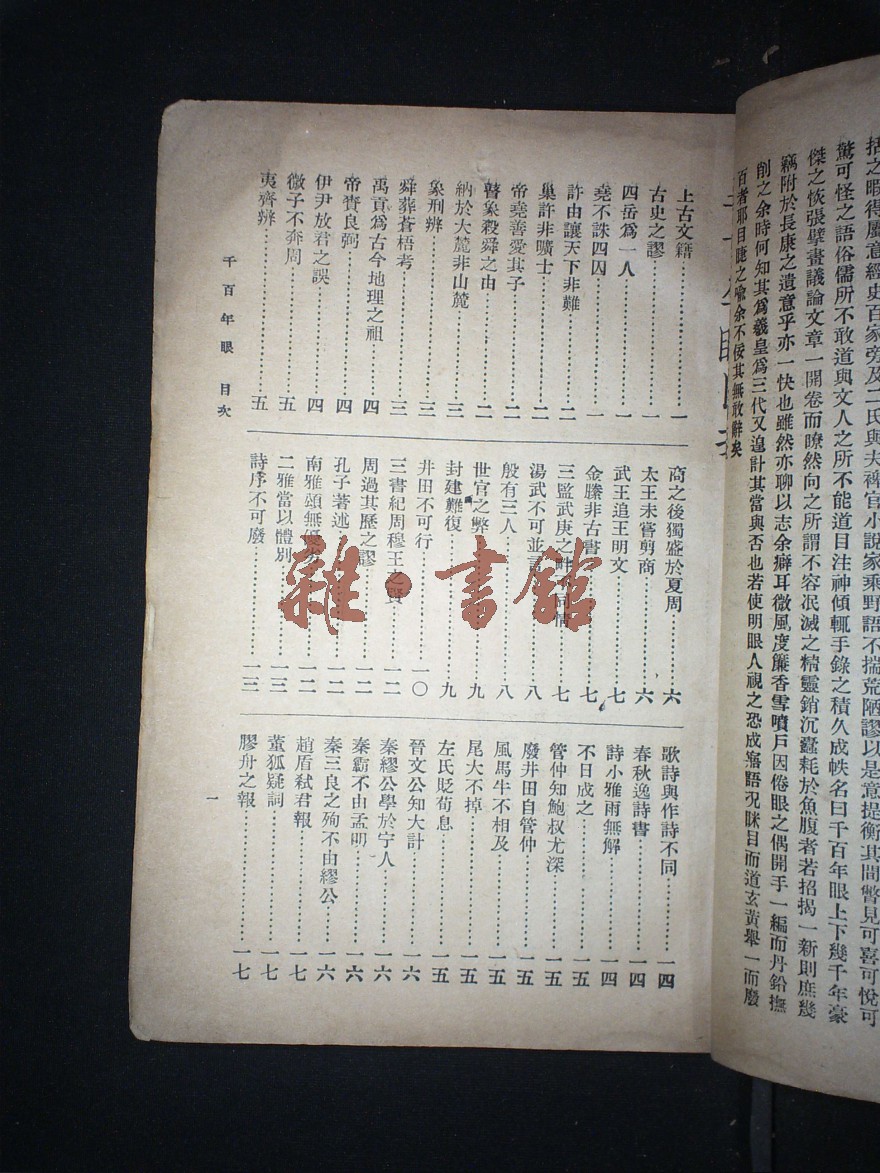 括之暇得屬意經史百家旁及二氏與夫稗官小說家乘野語不揣荒陋謬以是意提衡其間瞥見可喜可悅可
驚可怪之語俗儒所不敢道與文人之所不能道目注神傾輒手錄之積久成帙名曰千百年眼上下幾千年豪
傑之恢張擘畫議論文章一開卷而瞭然向之所謂不容泯滅之精靈銷沉蠹耗於魚腹者若招揭一新則庶幾
竊附於長康之遺意乎亦一快也雖然亦聊以志余癖耳微風度簾香雪噴戶因倦眼之偶開手一編而丹鉛撫
削之余時何知其爲羲皇爲三代又遑計其當與否也若使明眼人視之恐成寱語況眯目而道玄黃舉一而廢
百者耶目睫之喩余不佞其無敢辭矣
上古文籍……一
古史之謬……一
四岳爲一人……一
堯不誅四囚……一
許由讓天下非難……二
巢許非曠士……二
帝堯善愛其子……二
瞽象殺舜之由……二
納於大麓非山麓……三
象刑辨……三
舜葬蒼梧考……三
禹貢爲古今地理之祖……四
帝賚良弼……四
伊尹放君之誤……四
微子不奔周……五
夷齊辨……五
商之後獨盛於夏周……六
太王未嘗剪商……六
武王追王明文……七
金縢非古書……七
三監武庚之畔不同情……七
湯武不可並言……八
殷有三人……八
世官之弊……九
封建難復……九
井田不可行……一〇
三書紀周穆王之賢……一二
周過其歷之謬……一二
孔子著述……一二
南雅頌無優劣……一二
二雅當以體別……一三
詩序不可廢……一三
歌詩與作詩不同……一四
春秋逸詩書……一四
詩小雅雨無解……一四
不日成之……一五
管仲知鮑叔尤深……一五
廢井田自管仲……一五
風馬牛不相及……一五
尾大不掉……一五
左氏貶荀息……一五
晉文公知大計……一六
秦繆公學於宁人……一六
秦霸不由孟明……一六
秦三良之殉不由繆公……一六
趙盾弒君報……一七
董狐疑詞……一七
膠舟之報……一七
千百年眼 目次
一
雜·書館